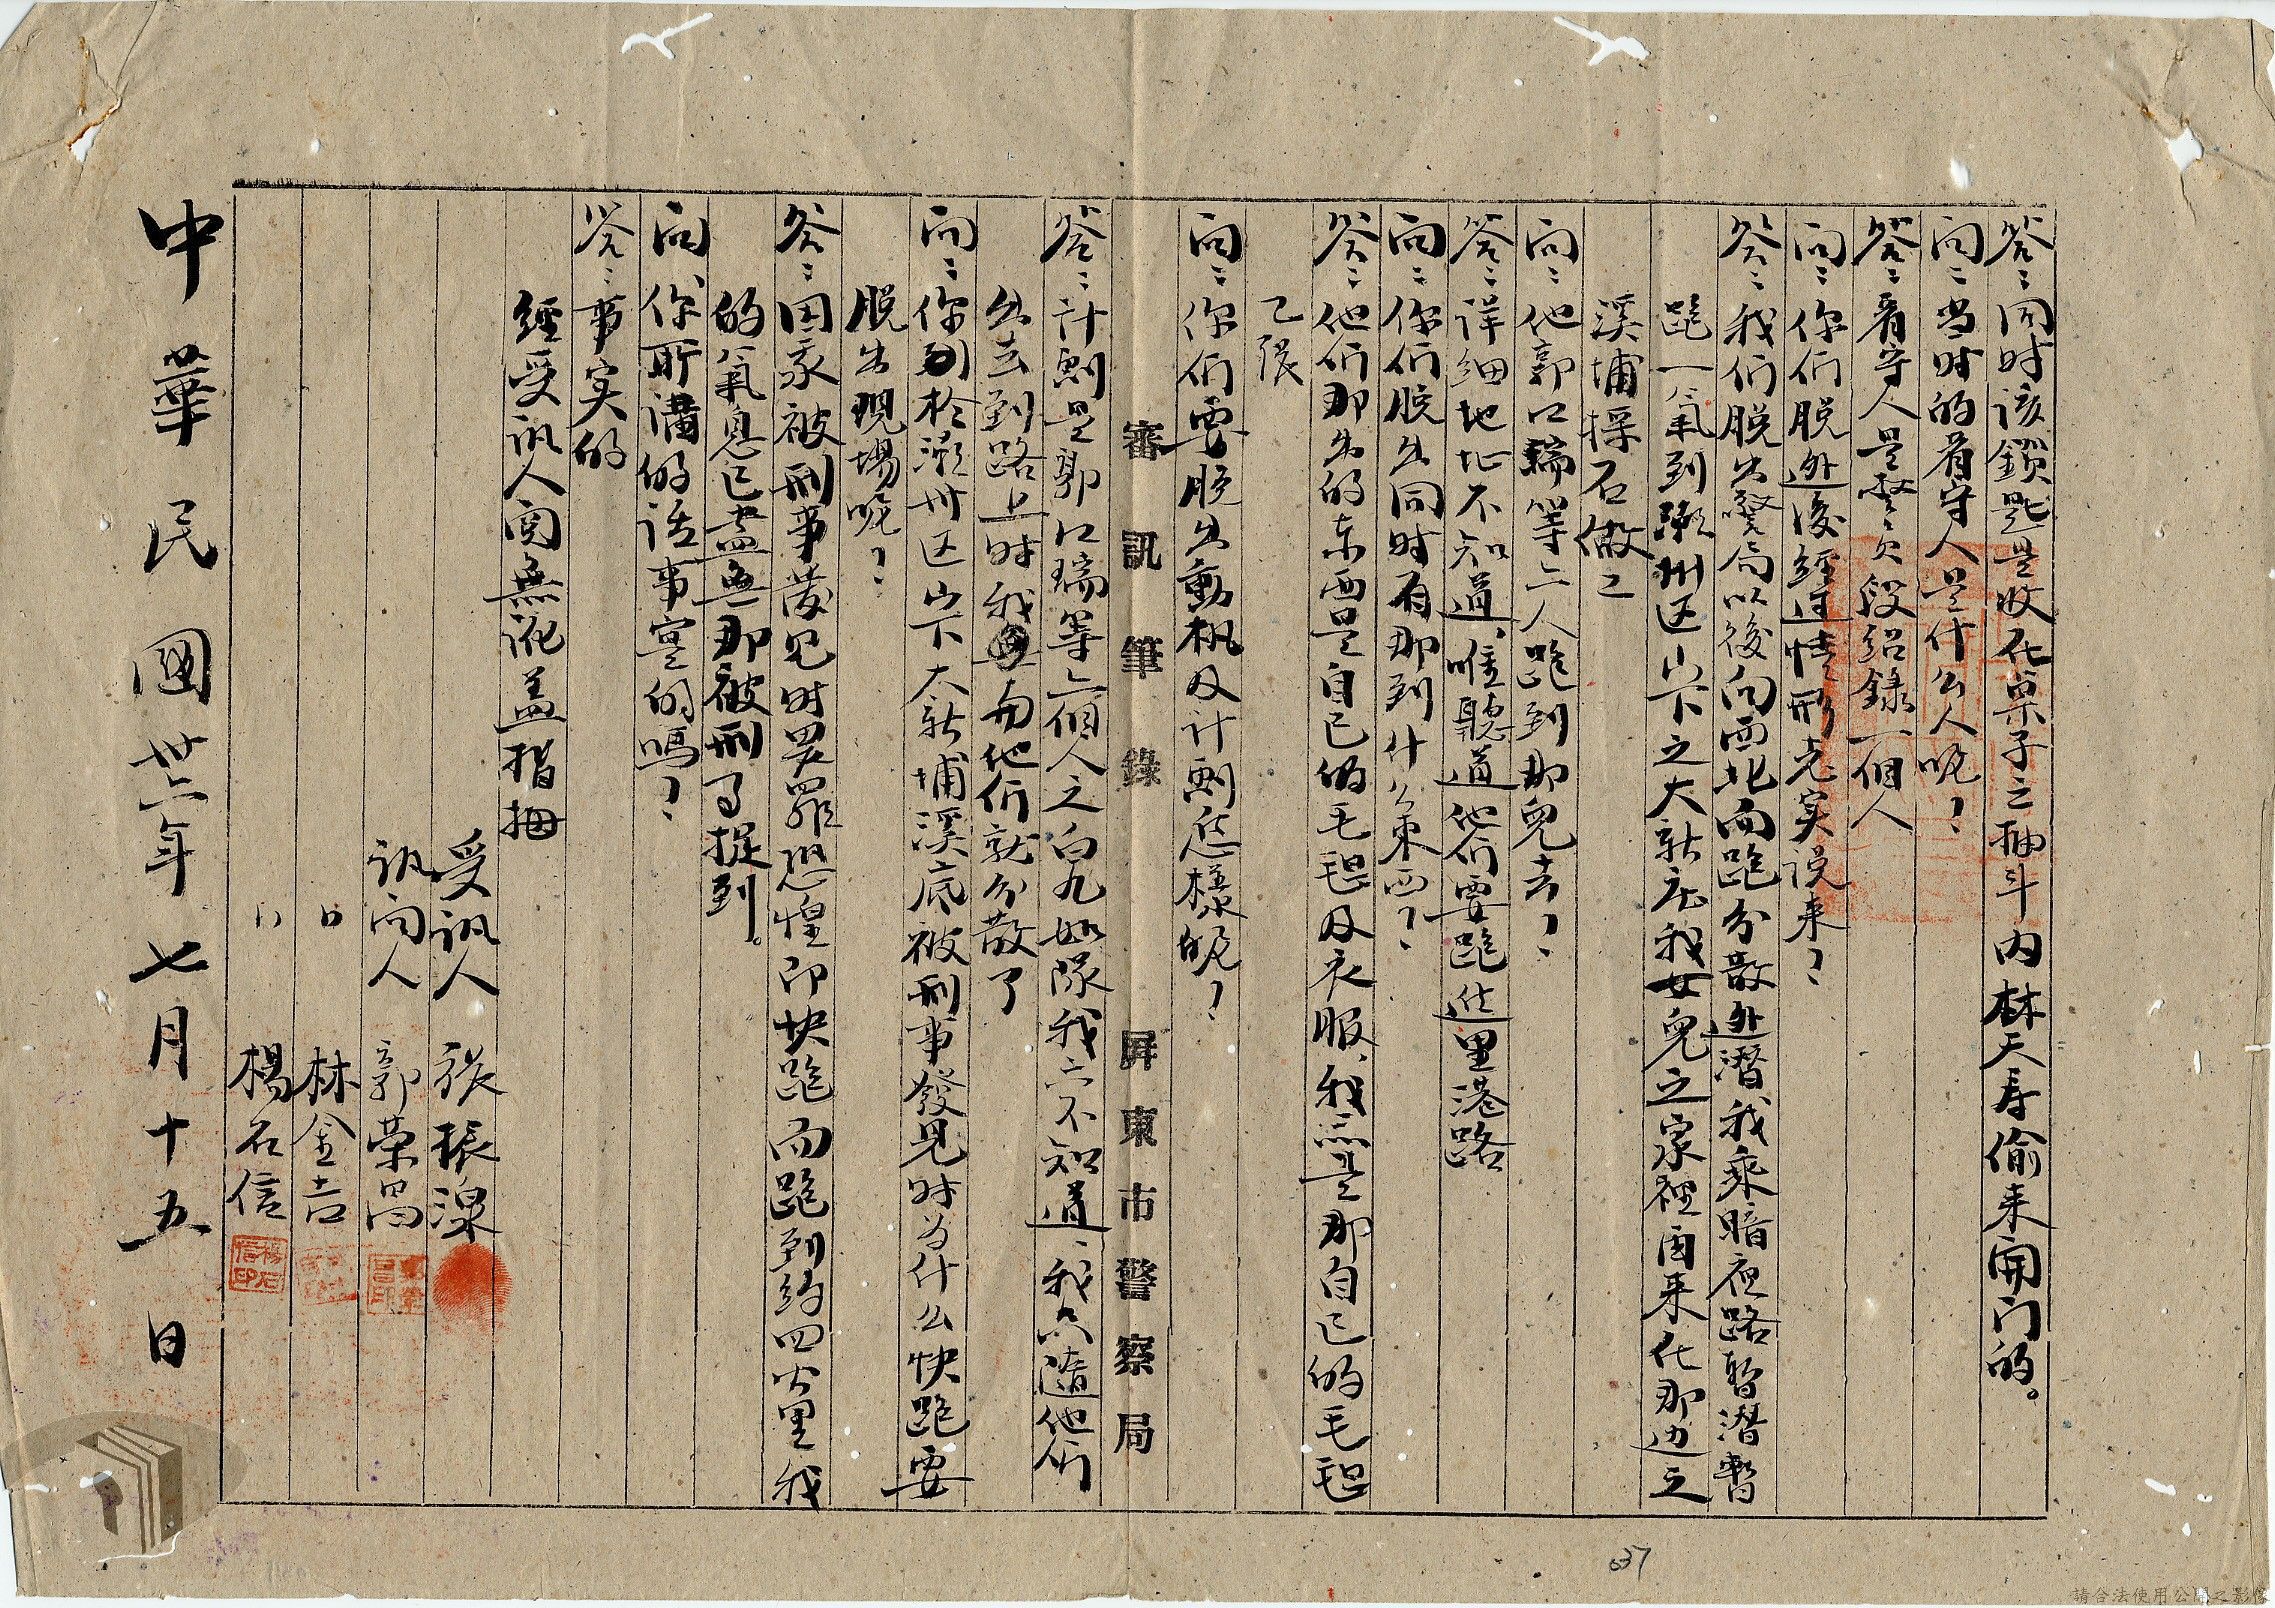 答：同时該鎖匙是收在桌子之抽斗內林天寿偷来開门的。
问：当时的看守人是什么人呢？
答：看守人是警欠段紹錄一個人
问：你们脱逃後経过情形老实说来？
答：我们脱出警局以後向西北面跑分散逃潛我乘暗夜路暫潛暫
跑一氣到瀬州区山下之大新庄我女兒之家裡因来在那边之
溪埔採石做工
问：他郭口瑞等二人跑到那兒去？
答：详细地址不知道、唯聽道他们要跑進里港路
问：你们脱出同时有那到什么東西？
答：他们那出的东西是自已的毛毯及衣服、我亦是那自已的毛毯
乙張
问：你们要脱出動机及计劃怎樣呢？
審訊筆錄 屏東市警察局
答：计劃是郭口瑞等二個人之白九如隊我亦不知道、我只隨他们
出去到路上时我与他们就分散了
问：你到於瀬州区山下大新埔溪底被刑事發見时为什么快跑要
脱出現場呢？
答：因我被刑事發見时畏罪恐惶即快跑而跑到约四公里我
的氣息已盡無那被刑事捉到。
问：你所講的话事寔的嗎？
答：事实的
經受讯人閱無訛盖指拇
受讯人 張振湶
讯问人 郭荣昌
〃 林金吉
〃 楊石信
楊石信印
中華民國卅六年七月十五日
037
請合法使用公開之影像